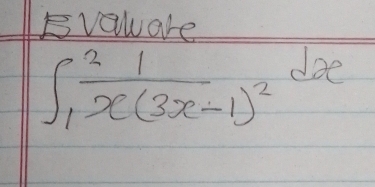 Evaluate
∫₁² 1/(x(3x-1)²) dx